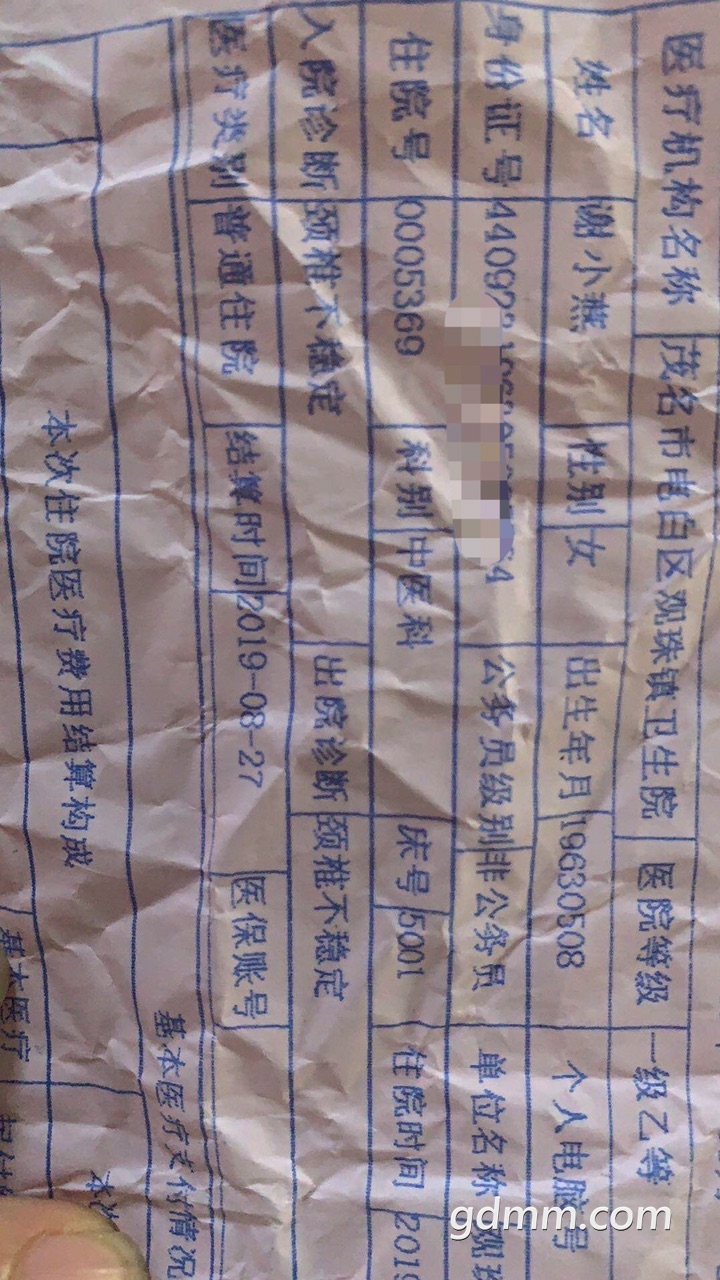 医疗机构名称 茂名市电白区观珠镇卫生院 医院等级 一级乙等
姓名 谢小燕 性别 女 出生年月 19630508 个人电脑号
身份证号 公务员级别 非公务员 单位名称
住院号 0005369 科别 中医科 床号 5001 住院时间 2019
入院诊断 颈椎不稳定 出院诊断 颈椎不稳定
医疗类别 普通住院 结算时间 2019-08-27 医保账号
基本医疗支付情况
本次住院医疗费用结算构成
基本医疗
gdmm.com